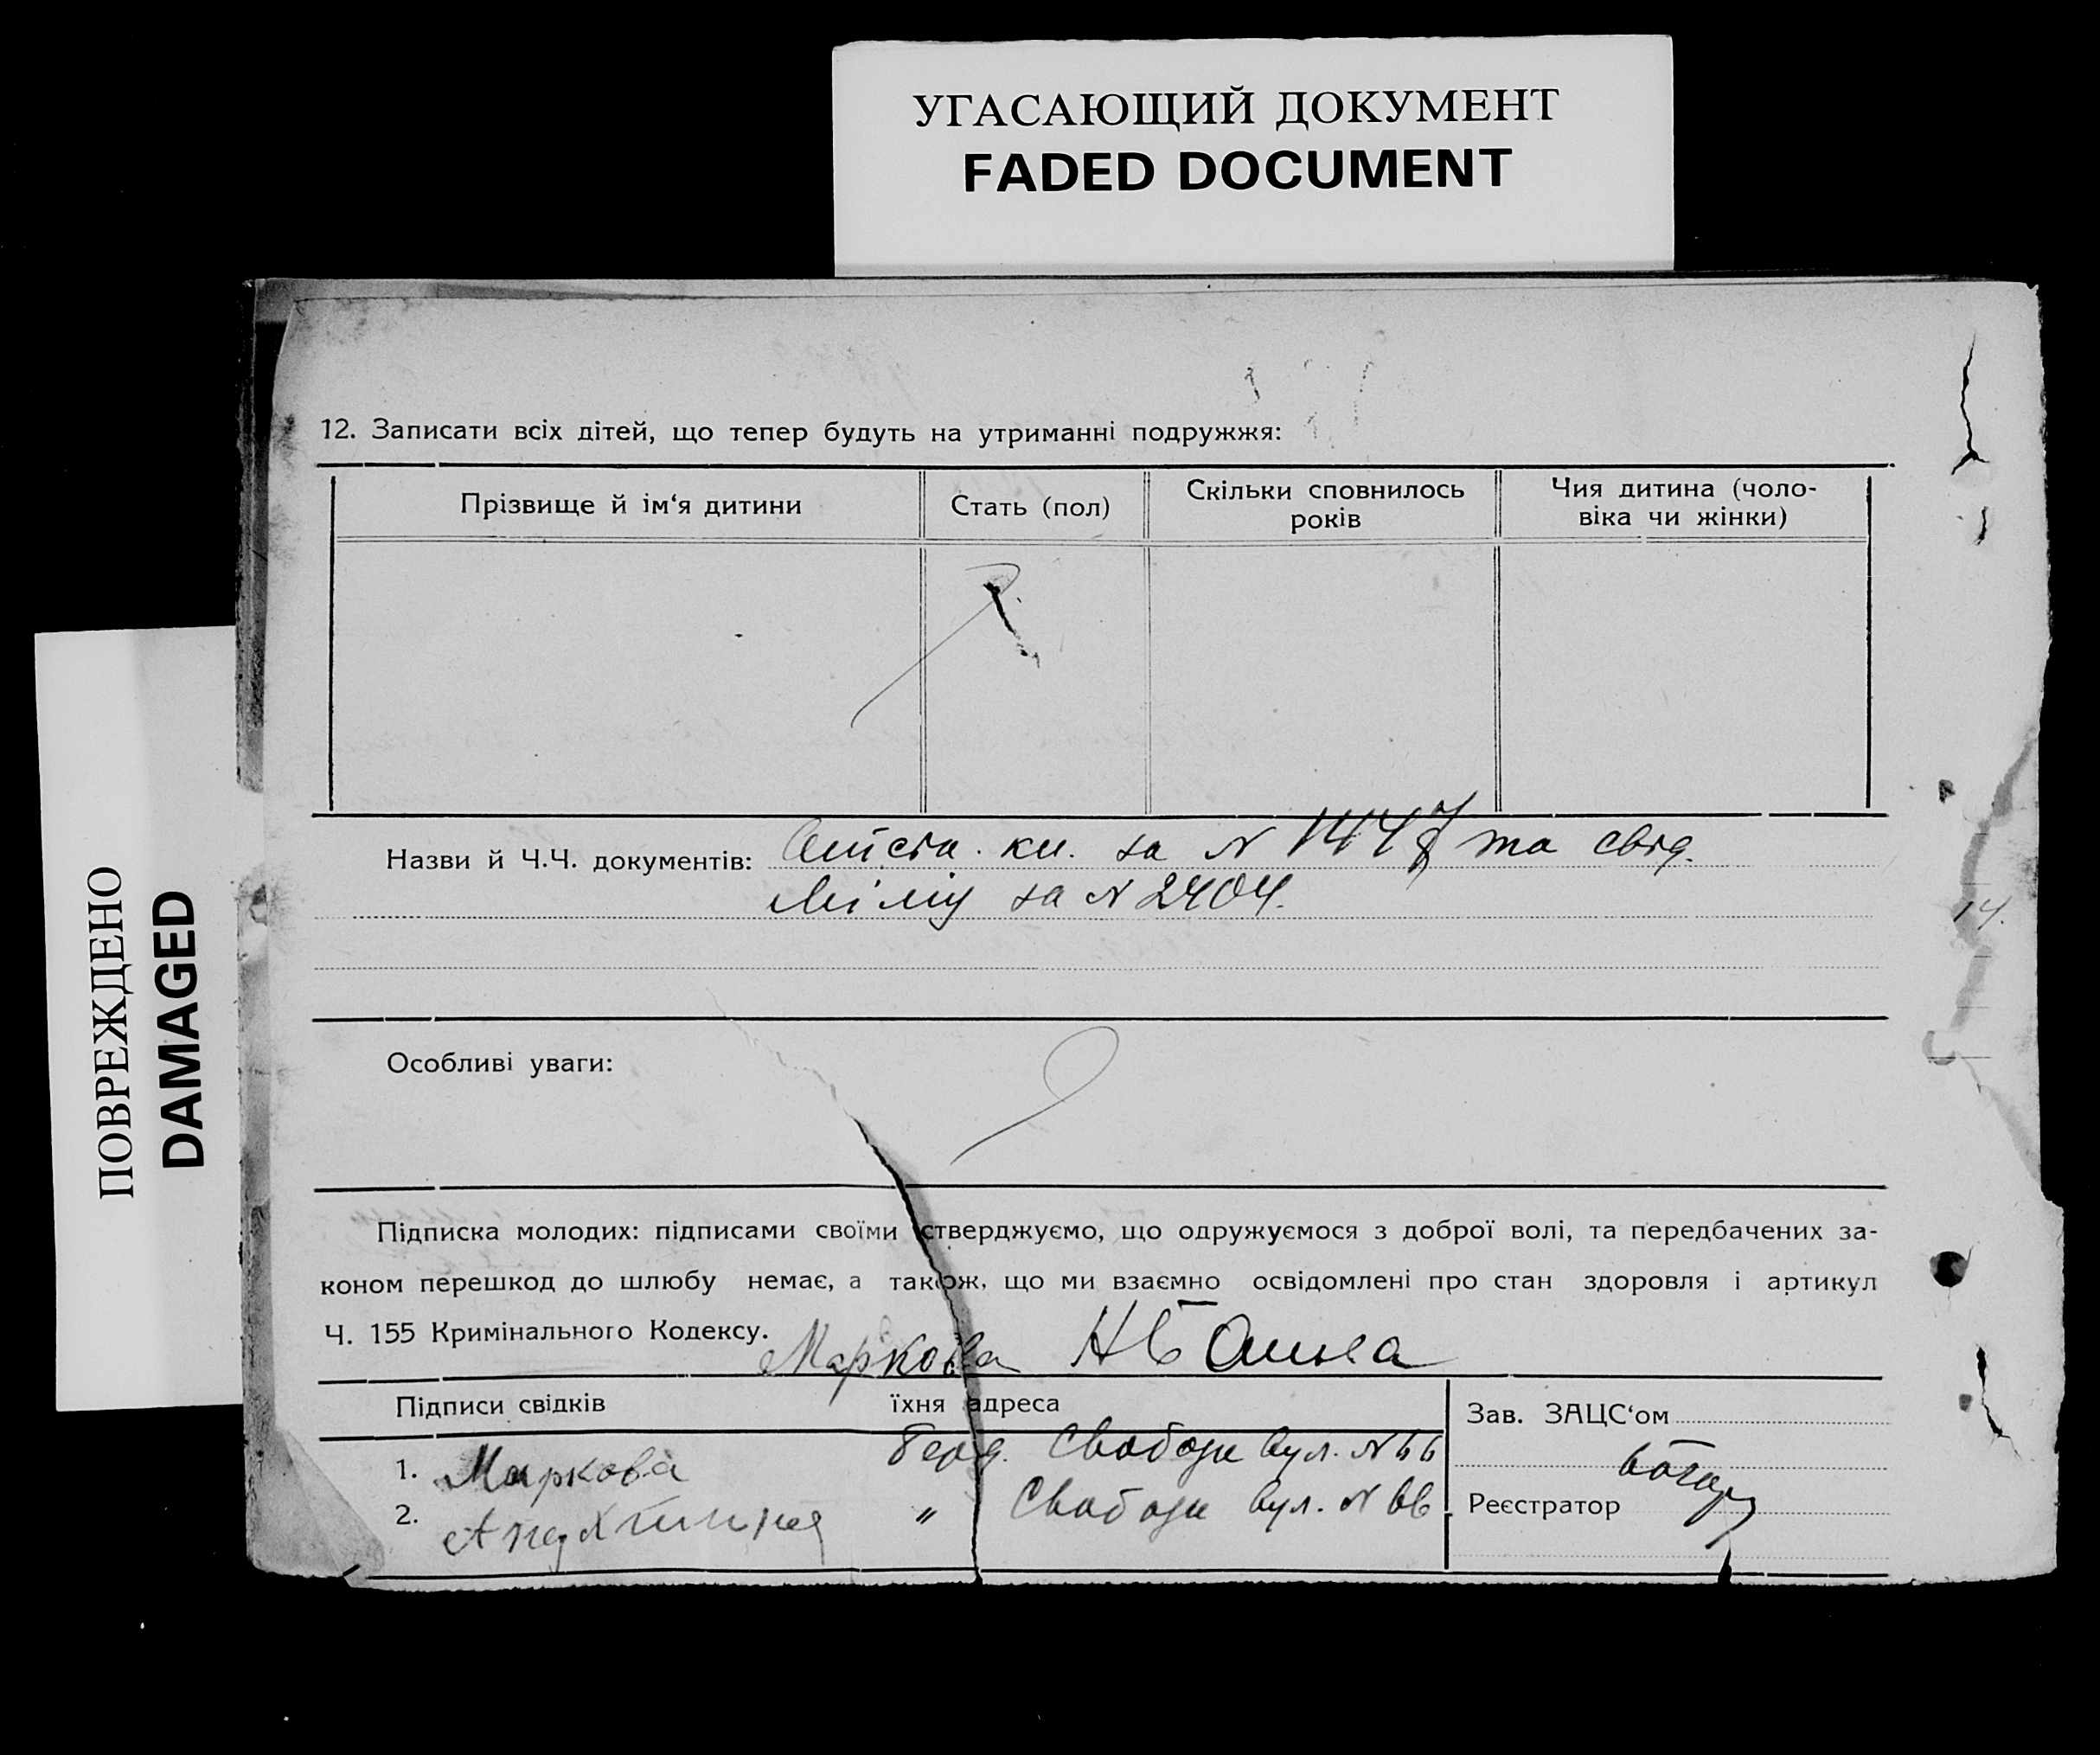 УГАСАЮЩИЙ ДОКУМЕНТ
FADED DOCUMENT
ПОВРЕЖДЕНО
DAMAGED
12. Записати всіх дітей, що тепер будуть на утриманні подружжя:
Прізвище й ім‘я дитини
Стать (пол)
Скільки сповнилось
років
Чия дитина (чоло-
віка чи жінки)
Назви й Ч.Ч. документів: кн. за N 1447 та свід.
за N 2404.
14.
Особливі уваги:
Підписка молодих: підписами своїми стверджуємо, що одружуємося з доброї волі, та передбачених за-
коном перешкод до шлюбу немає, а також, що ми взаємно освідомлені про стан здоровля і артикул
Ч. 155 Кримінального Кодексу.
Маркова
Підписи свідків
їхня адреса
Зав. ЗАЦС‘ом
1. Маркова Берд. Свободи вул. N 66
2. " Свободи вул. N 66
Реєстратор